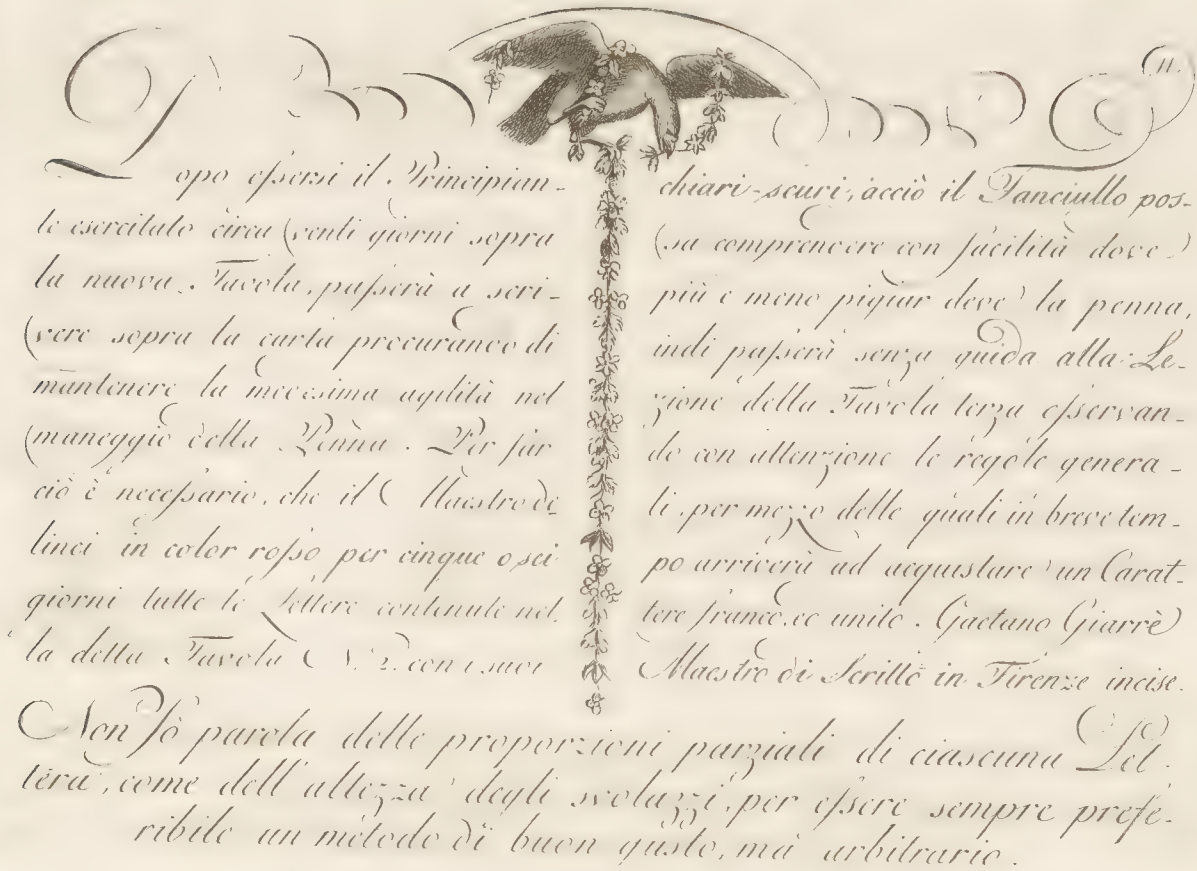 11.
Dopo essersi il Principian-
te esercitato circa venti giorni sopra
la nuova Tavola, passerà a scri-
vere sopra la carta procurando di
mantenere la medesima agilità nel
maneggio della Penna. Per far
ciò è necessario, che il Maestro de
linei in color rosso per cinque o sei
giorni tutte le Lettere contenute nel
la detta Tavola N. 2. con i suoi
chiari-scuri, acciò il Fanciullo pos-
sa comprendere con facilità dove
più e meno pigiar deve la penna,
indi passerà senza guida alla Le-
zione della Tavola terza osservan-
do con attenzione le regole genera-
li, per mezzo delle quali in breve tem-
po arriverà ad acquistare un Carat-
tere franco, ed unito. Gaetano Giarrè
Maestro di Scritto in Firenze incise.
Non fò parola delle proporzioni parziali di ciascuna Let-
tera, come dell'altezza degli svolazzi, per essere sempre prefe-
ribile un metodo di buon gusto, ma arbitrario.